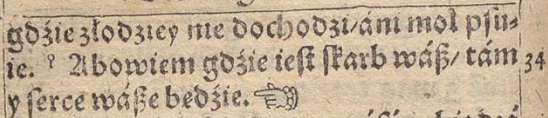 gdźie złodźiey nie dochodzi/áni mol psu-
ie. Abowiem gdźie iest skarb wáß/ tám 34
y serce wáße bedźie. ☜